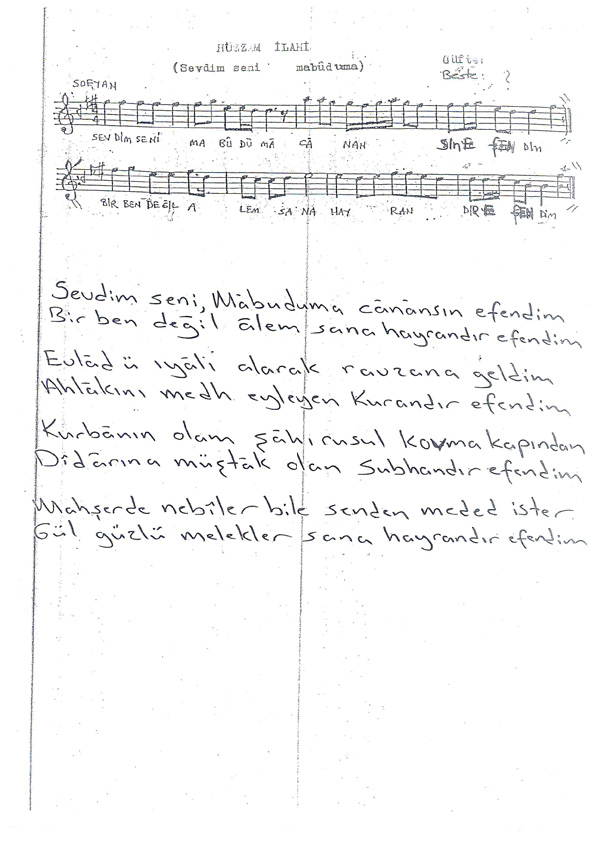 HÜZZAM İLAHİ
(Sevdim seni mabûduma)
Güfte:
Beste: ?
SOFYAN
SEVDİM SENİ MA BÛ DÛ MÂ CÂ NAN DİM
BİR BEN DEĞİL A LEM SA NA HAY RAN DIR DİM
Sevdim seni, Mâbuduma cânânsın efendim
Bir ben değil âlem sana hayrandır efendim
Evlâd ü ıyâli alarak ravzana geldim
Ahlâkını medh eyleyen Kurandır efendim
Kurbânın olam şâhırusul kovma kapından
Dîdârına müştâk olan Subhandır efendim
Mahşerde nebîler bile senden meded ister
Gül yüzlü melekler sana hayrandır efendim